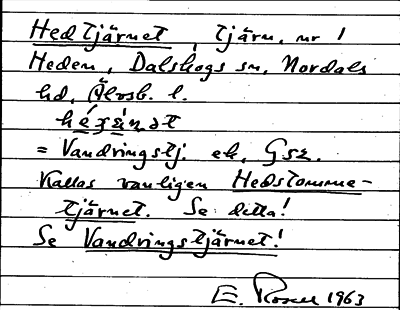 Hedtjärnet, tjärn, nr 1
Heden, Dalskogs sn, Nordals
hd, Älvsb. l.
= Vandringstj. ek, Gsz.
Kallas vanligen Hedstomme-
tjärnet. Se detta!
Se Vandringstjärnet!
E. 1963